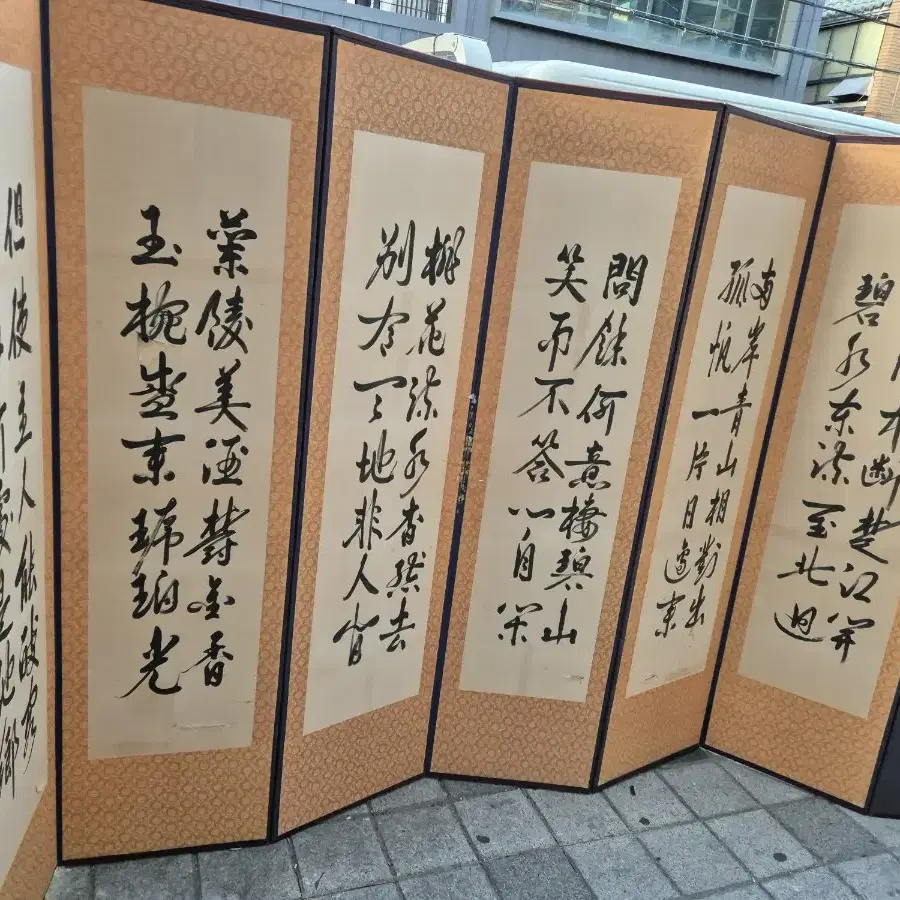 門中斷楚江開
碧水東流至北迴
兩岸青山相對出
孤帆一片日邊來
問餘何意棲碧山
笑而不答心自閑
桃花流水杳然去
別有天地非人間
蘭陵美酒鬱金香
玉椀盛來琥珀光
但使主人能醉客
何處是他鄉